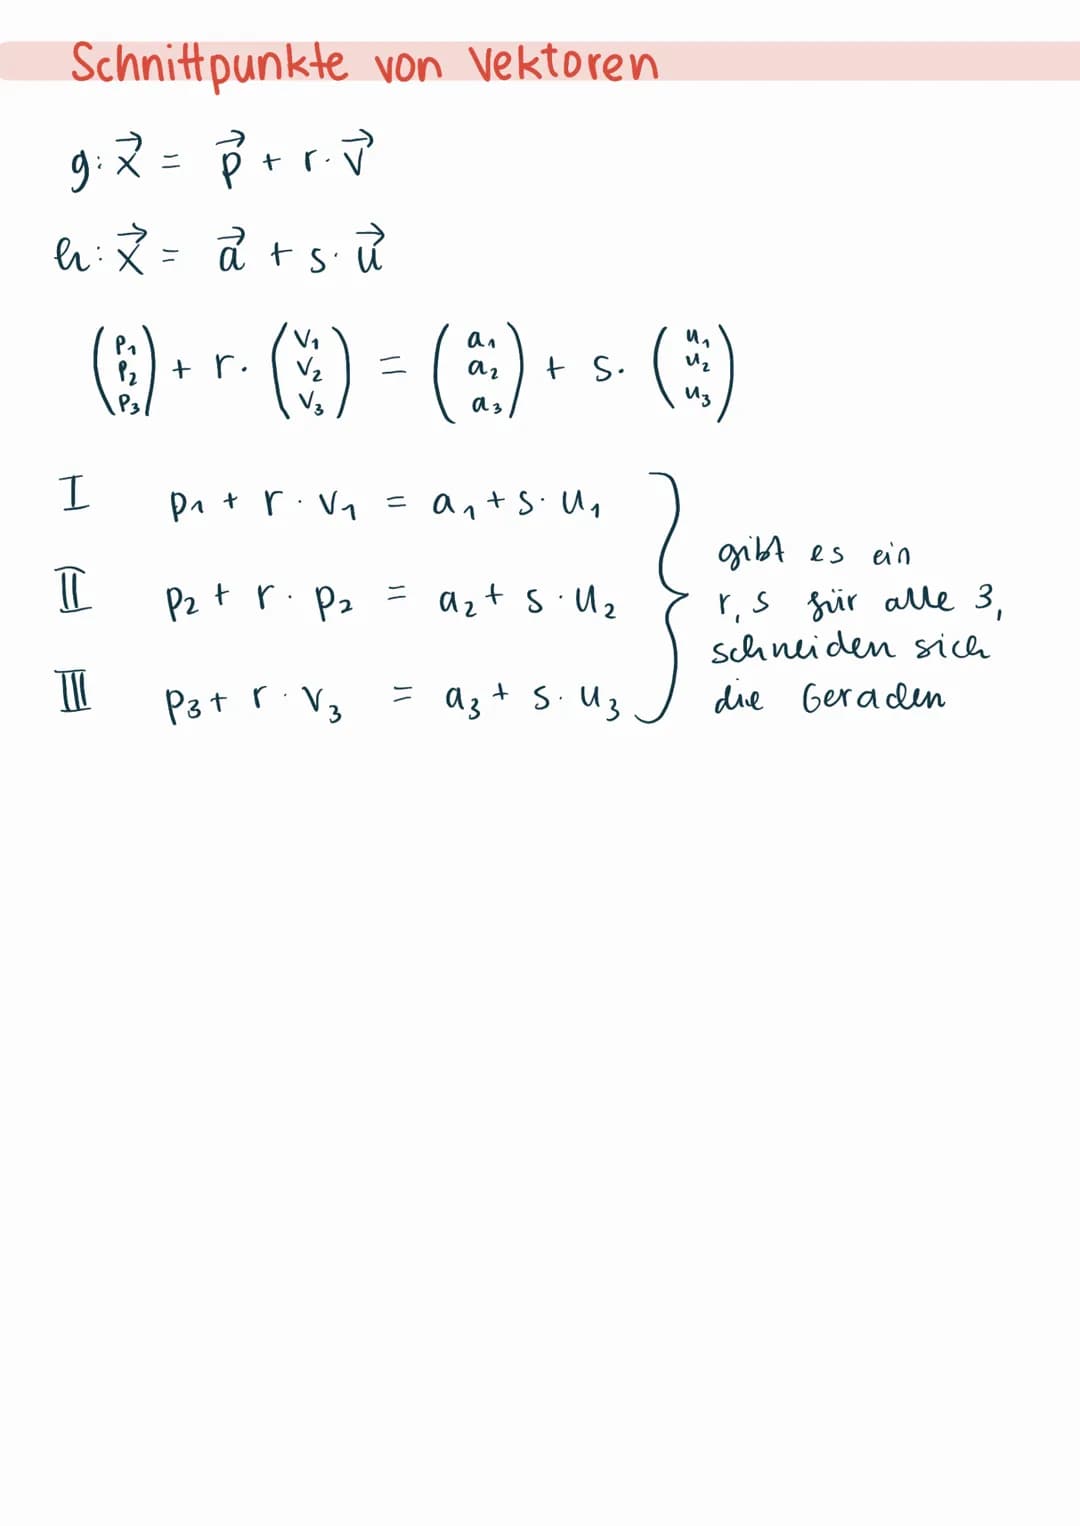 Schnittpunkte von Vektoren
g: x⃗ = p⃗ + r · v⃗
h: x⃗ = a⃗ + s · u⃗
(p₁ p₂ p₃) + r · (v₁ v₂ v₃) = (a₁ a₂ a₃) + s · (u₁ u₂ u₃)
I p₁ + r · v₁ = a₁ + s · u₁
II p₂ + r · p₂ = a₂ + s · u₂
III p₃ + r · v₃ = a₃ + s · u₃
gibt es ein
r, s für alle 3,
schneiden sich
die Geraden